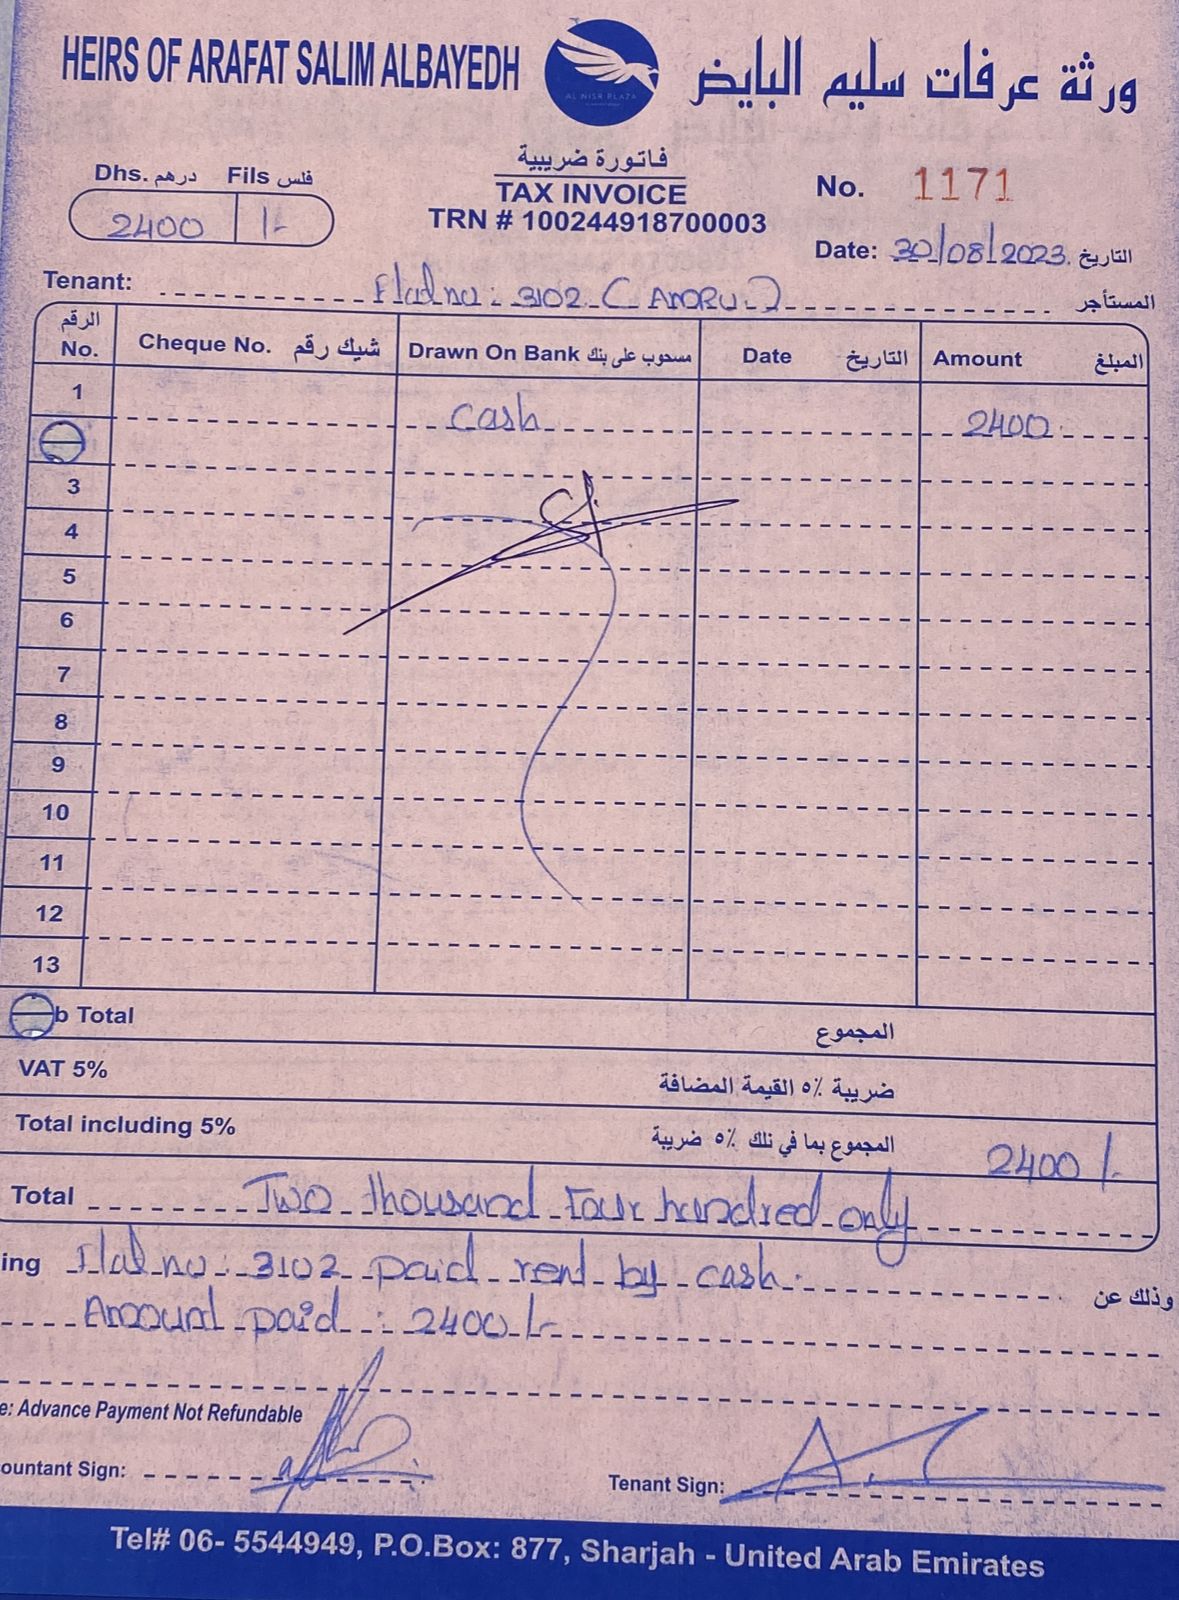 HEIRS OF ARAFAT SALIM ALBAYEDH
AL NISR PLAZA
ورثة عرفات سليم البايض
فاتورة ضريبية
TAX INVOICE
TRN # 100244918700003
Dhs. درهم Fils فلس
2400 /-
No. 1171
Date: 30/08/2023. التاريخ
Tenant: Flat no: 3102 ( ANDRU ) المستأجر
الرقم No. Cheque No. شيك رقم Drawn On Bank مسحوب على بنك Date التاريخ Amount المبلغ
1 cash 2400
3
4
5
6
7
8
9
10
11
12
13
b Total المجموع
VAT 5% ضريبة ٥٪ القيمة المضافة
Total including 5% المجموع بما في ذلك ٥٪ ضريبة 2400 /-
Total Two thousand four hundred only
ing Flat no: 3102 paid rent by cash. وذلك عن
Amount paid : 2400/-
e: Advance Payment Not Refundable
ountant Sign:
Tenant Sign:
Tel# 06- 5544949, P.O.Box: 877, Sharjah - United Arab Emirates